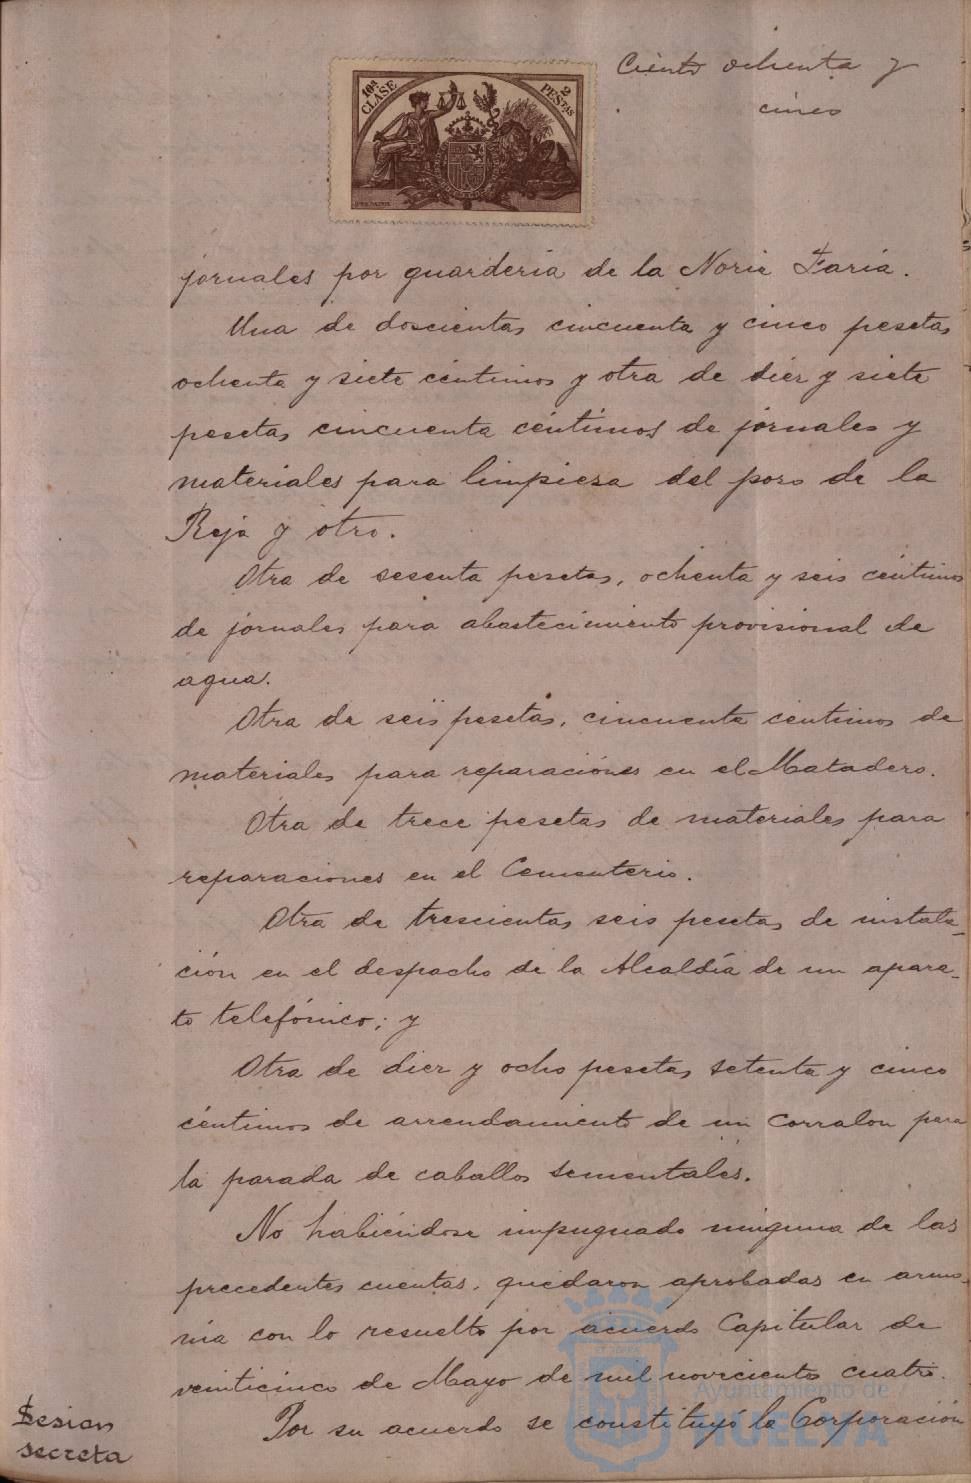 Ciento ochenta y
cinco
10ª CLASE
2 PESTAS
jornales por guarderia de la Noria Faria.
Una de doscientas cincuenta y cinco pesetas
ochenta y siete céntimos y otra de diez y siete
pesetas cincuenta céntimos de jornales y
materiales para limpieza del pozo de la
Reja y otro.
Otra de sesenta pesetas, ochenta y seis céntimos
de jornales para abastecimiento provisional de
agua.
Otra de seis pesetas, cincuenta centimos de
materiales para reparaciones en el Matadero.
Otra de trece pesetas de materiales para
reparaciones en el Cementerio.
Otra de trescientas seis pesetas de instala-
ción en el despacho de la Alcaldía de un apara-
to telefónico; y
Otra de diez y ocho pesetas setenta y cinco
céntimos de arrendamiento de un corralon para
la parada de caballos sementales.
No habiéndose impugnado ninguna de las
precedentes cuentas, quedaron aprobadas en armo-
nia con lo resuelto por acuerdo Capitular de
veinticinco de Mayo de mil novecientos cuatro.
Sesion
secreta
Por su acuerdo se constituyó la Corporación
Ayuntamiento de
HUELVA